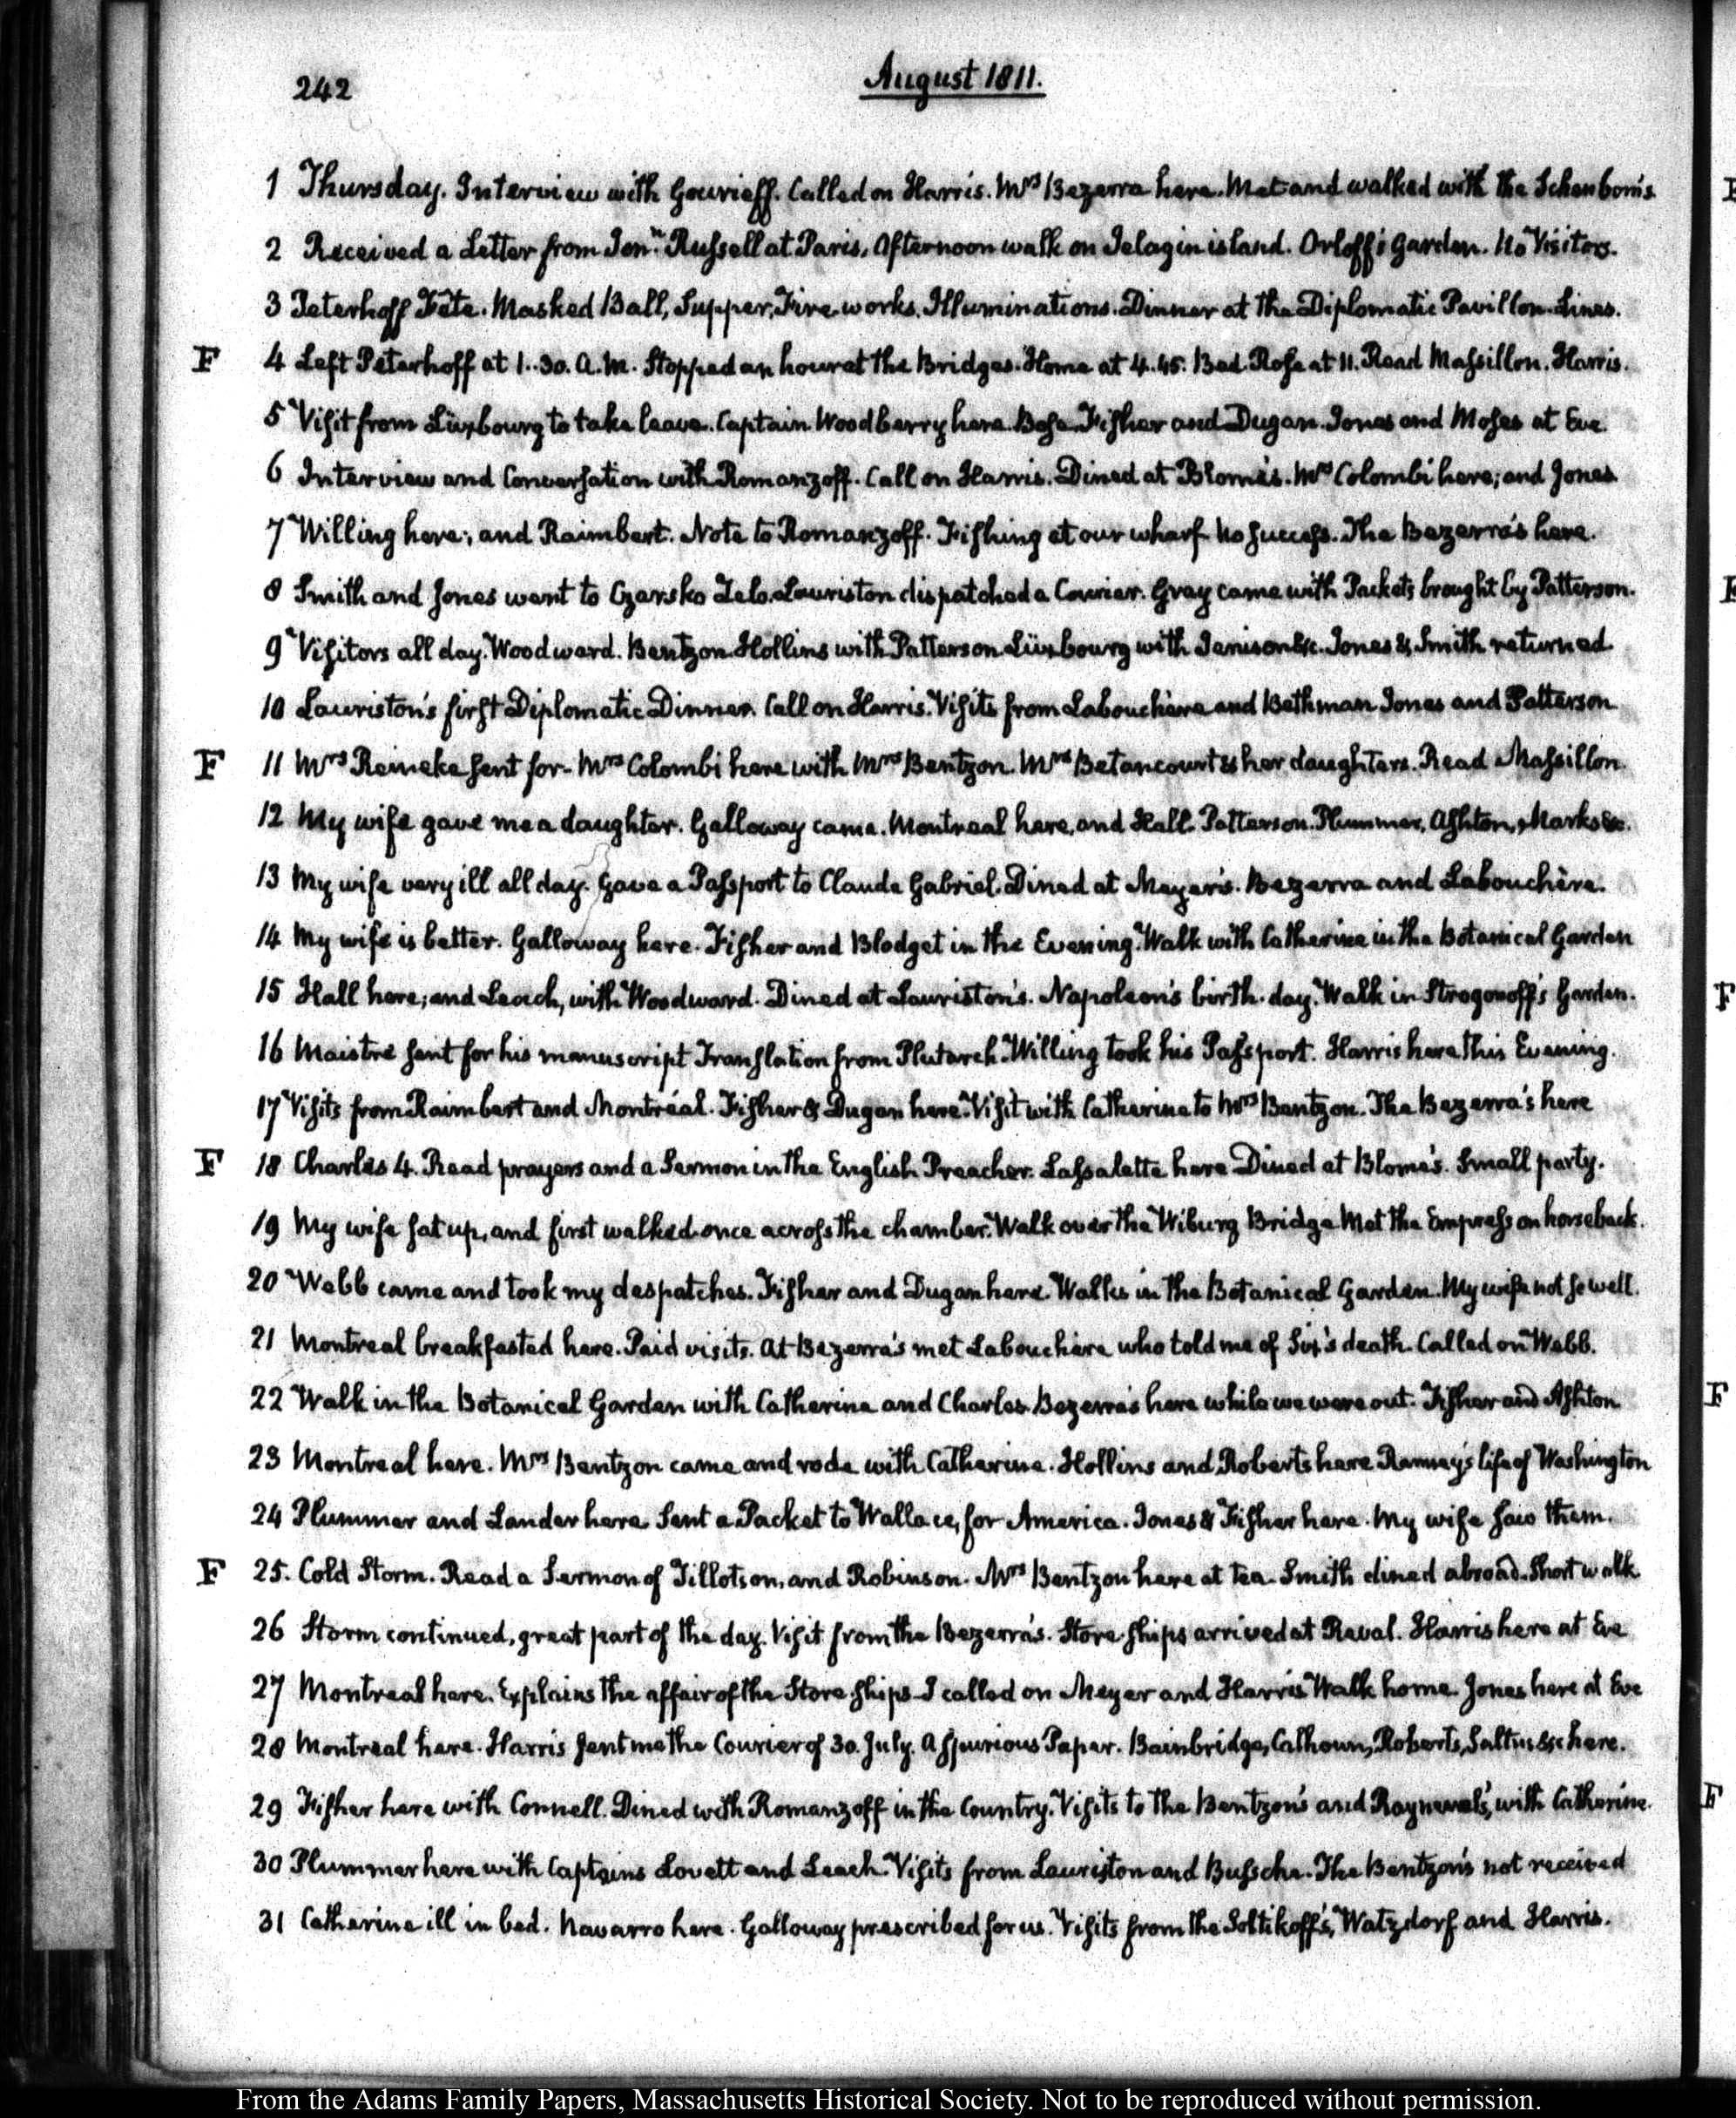 242
August 1811.
1 Thursday. Interview with Gourieff. Called on Harris. Mrs Bezerra here. Met and walked with the Schenbom's
2 Received a Letter from Jonn. Russell at Paris. Afternoon walk on Jelagin island. Orloff's Garden. No Visitors.
3 Peterhoff Fête. Masked Ball, Supper, Fire works. Illuminations. Dinner at the Diplomatic Pavillon. Lines.
F 4 Left Peterhoff at 1..30. A.M. Stopped an hour at the Bridges. Home at 4..45. Bed. Rose at 11. Read Massillon. Harris.
5 Visit from Lüxbourg to take leave. Captain Woodberry here. Bose. Fisher and Dugan. Jones and Moses at Eve.
6 Interview and Conversation with Romanzoff. Call on Harris. Dined at Blome's. Mrs Colombi here; and Jones.
7 Willing here; and Raimbert. Note to Romanzoff. Fishing at our wharf no success. The Bezerra's here.
8 Smith and Jones went to Czarsko Zelo. Lauriston dispatched a Courier. Gray came with Packets brought by Patterson.
9 Visitors all day. Woodward. Bentzon. Hollins with Patterson Lüxbourg with Jenison &c. Jones & Smith returned
10 Lauriston's first Diplomatic Dinner. Call on Harris. Visits from Labouchère and Bethman Jones and Patterson
F 11 Mrs Reineke sent for. Mrs Colombi here with Mrs Bentzon. Mrs Betancourt & her daughters. Read Massillon.
12 My wife gave me a daughter. Galloway came. Montreal here, and Hall. Patterson. Plummer, Ashton, Marks &c.
13 My wife very ill all day. Gave a Passport to Claude Gabriel. Dined at Meyer's. Bezerra and Labouchère.
14 My wife is better. Galloway here. Fisher and Blodget in the Evening. Walk with Catherine in the Botanical Garden
15 Hall here; and Leach, with Woodward. Dined at Lauriston's. Napoleon's birth-day. Walk in Strogonoff's Garden.
16 Maistre sent for his manuscript Translation from Plutarch. Willing took his Passport. Harris here this Evening.
17 Visits from Raimbert and Montréal. Fisher & Dugan here. Visit with Catherine to Mrs Bentzon. The Bezerra's here
F 18 Charles 4. Read prayers and a Sermon in the English Preacher. Lassalette here Dined at Blome's. Small party.
19 My wife sat up, and first walked once across the chamber. Walk over the Wiburg Bridge Met the Empress on horseback.
20 Webb came and took my despatches. Fisher and Dugan here. Walks in the Botanical Garden. My wife not so well.
21 Montreal breakfasted here. Paid visits. At Bezerra's met Labouchere who told me of Six's death. Called on Webb.
22 Walk in the Botanical Garden with Catherine and Charles. Bezerra's here while we were out. Fisher and Ashton
23 Montreal here. Mrs Bentzon came and rode with Catherine. Hollins and Roberts here Ramsay's life of Washington
24 Plummer and Lander here Sent a Packet to Wallace, for America. Jones & Fisher here. My wife saw them.
F 25. Cold Storm. Read a Sermon of Tillotson, and Robinson. Mrs Bentzon here at tea. Smith dined abroad. Short walk.
26 Storm continued, great part of the day. Visit from the Bezerra's. Store ships arrived at Reval. Harris here at Eve
27 Montreal here. Explains the affair of the Store ships. I called on Meyer and Harris Walk home. Jones here at Eve
28 Montreal here. Harris sent me the Courier of 30. July. A spurious Paper. Bainbridge, Calhoun, Roberts, Saltus &c here.
29 Fisher here with Connell. Dined with Romanzoff in the Country. Visits to the Bentzon's and Rayneval's, with Catherine.
30 Plummer here with Captains Lovett and Leach. Visits from Lauriston and Bussche. The Bentzon's not received
31 Catherine ill in bed. Navarro here. Galloway prescribed for us. Visits from the Soltikoff's, Watzdorf and Harris.
From the Adams Family Papers, Massachusetts Historical Society. Not to be reproduced without permission.